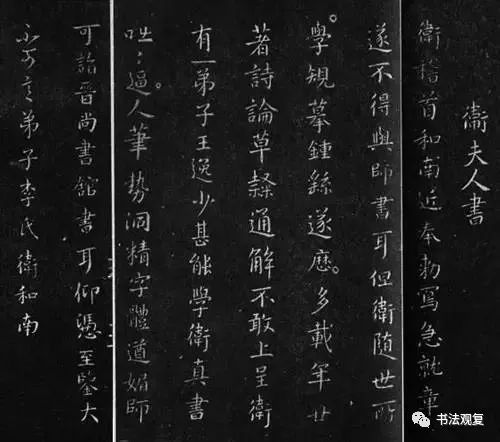 衛夫人書
衛稽首和南近奉勅寫急就章
遂不得與師書耳但衛隨世所
學規摹鍾繇遂歷多載年廿
著詩論草隸通解不敢上呈衛
有一弟子王逸少甚能學衛真書
咄咄逼人筆勢洞精字體遒媚師
可詣晉尚書館書耳仰憑至鑒大
不可言弟子李氏衛和南
书法观复